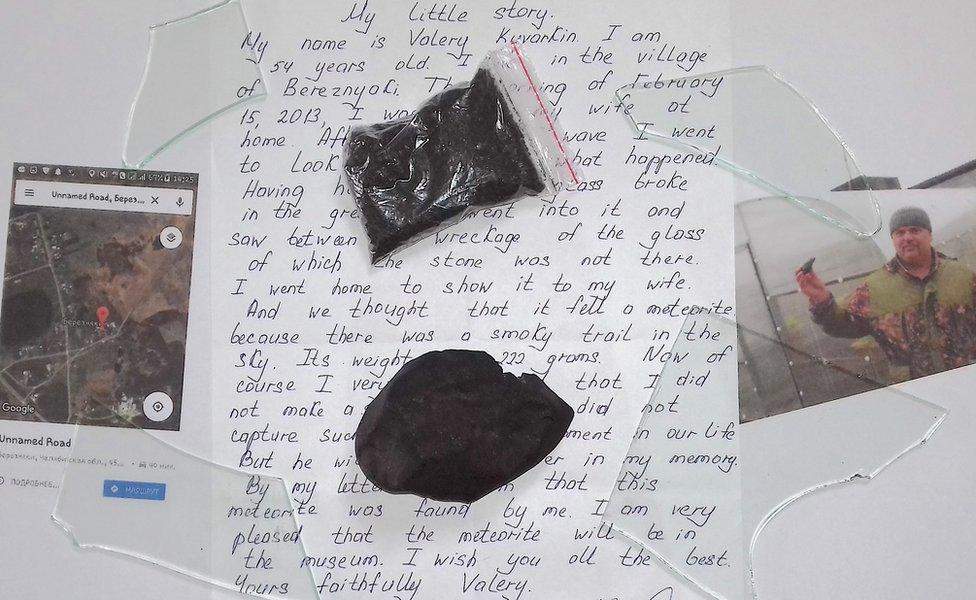 My little story.
My name is Valery Kuvarkin. I am
54 years old. I in the village
of Bereznyaki. of February
15, 2013, I my wife at
home. wave I went
to look what happened.
Having broke
in the went into it and
saw between wreckage of the glass
of which the stone was not there.
I went home to show it to my wife.
And we thought that it fell a meteorite
because there was a smoky trail in the
sky. Its weight 222 grams. Now of
course I very that I did
not make a did not
capture in our life
But he in my memory.
By my that this
meteorite was found by me. I am very
pleased that the meteorite will be in
the museum. I wish you all the best.
Yours faithfully Valery.
67% 14:25
Unnamed Road, Берез...
Березняки
Google
Unnamed Road
Березняки, Челябинская обл., 45...
40 мин.
ПОДРОБНЕЕ...
МАРШРУТ